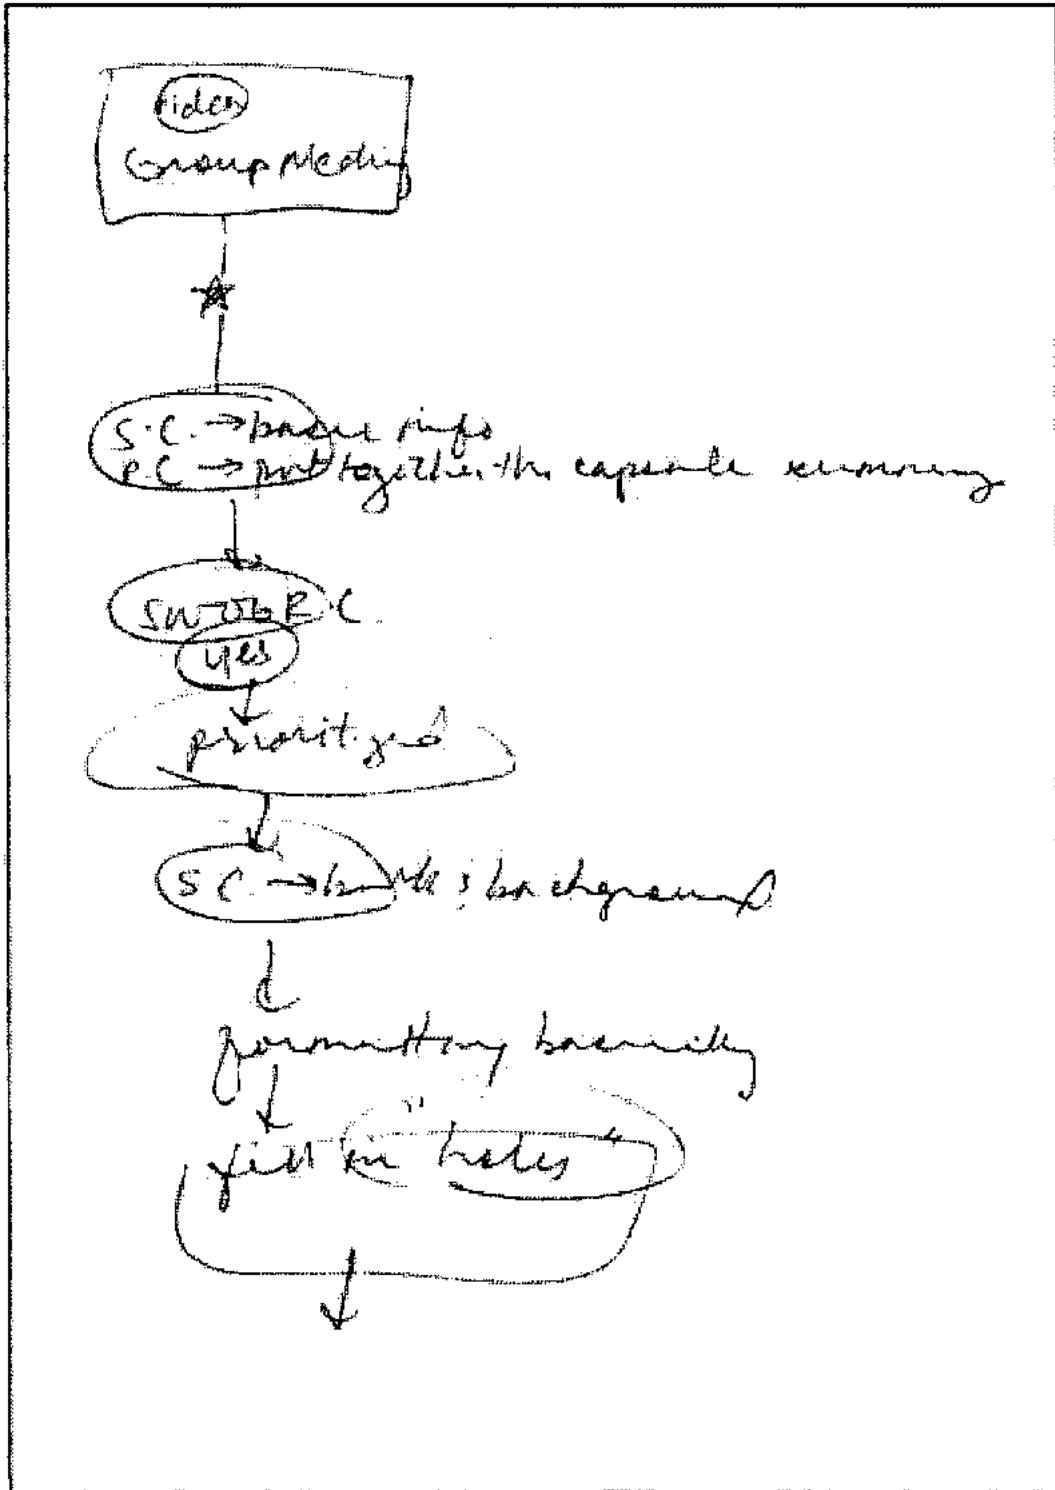 Group Meeting
S.C. → basic info
P.C → put together the capsule summary
R.C.
yes
prioritized
S C. → background
formatting basically
fill in "holes"